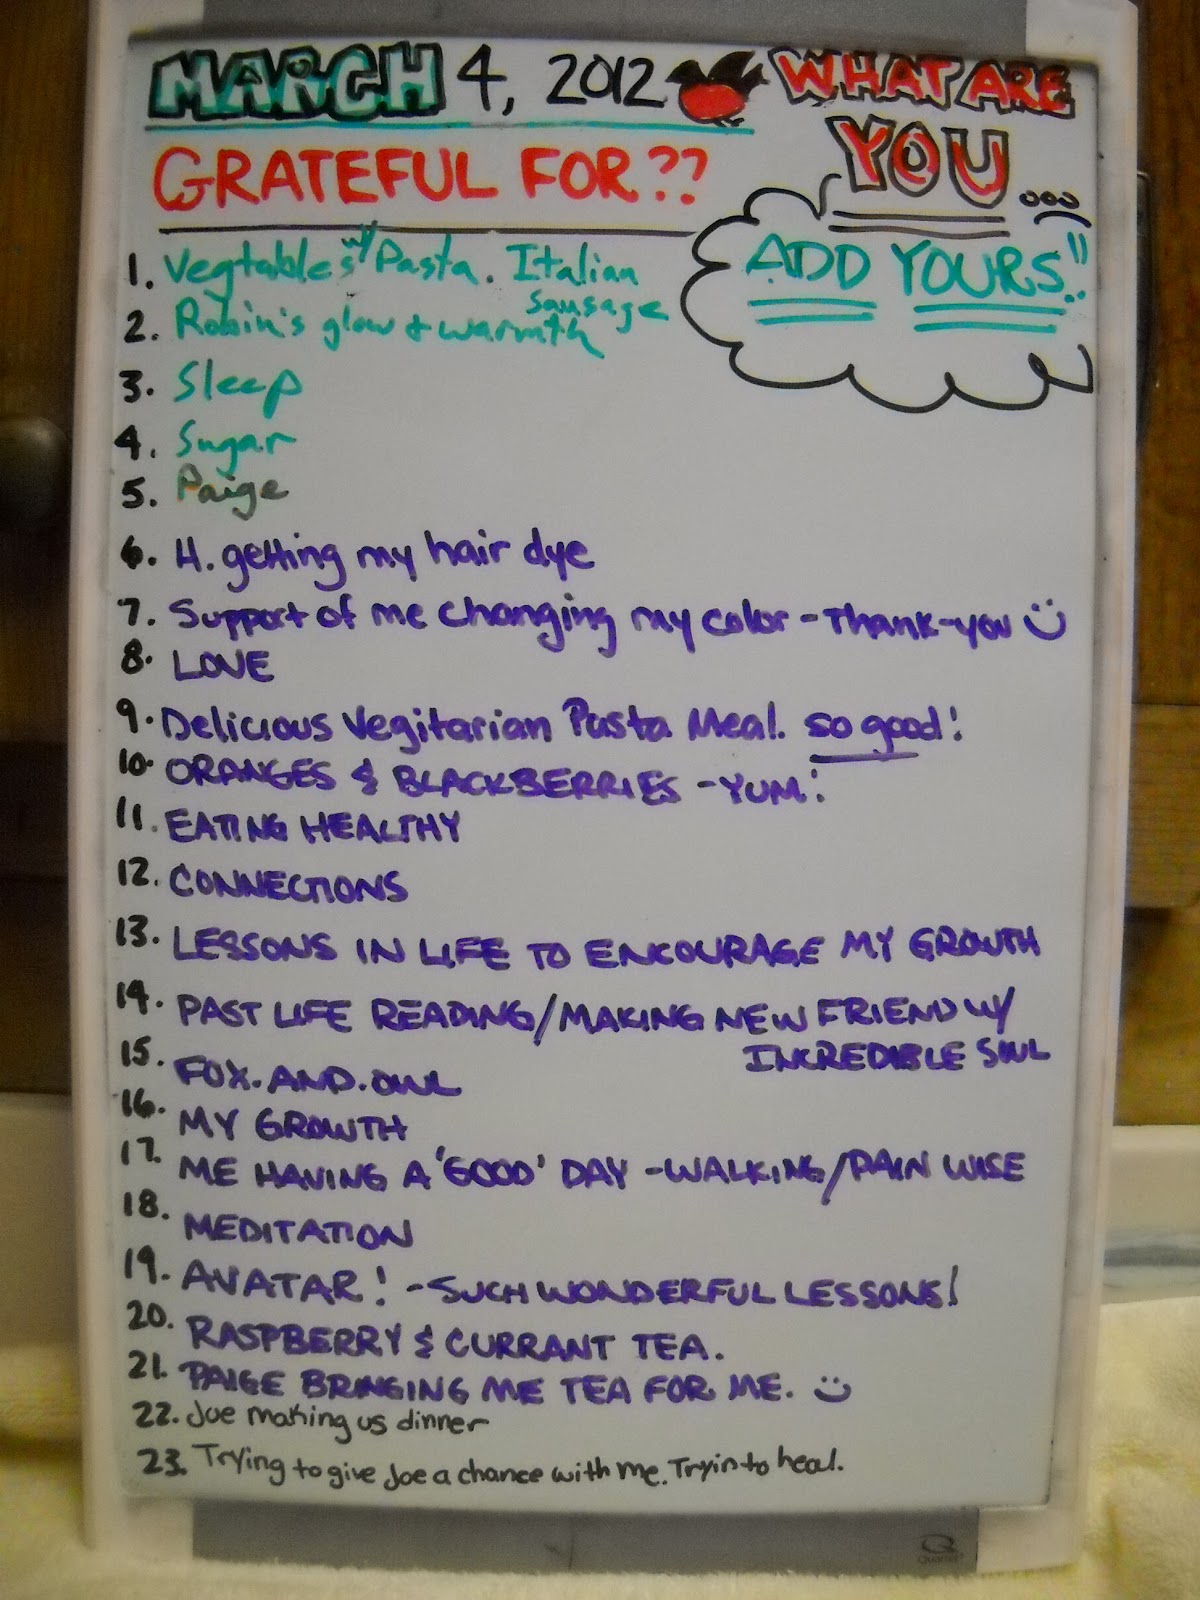 MARCH 4, 2012 WHAT ARE
YOU...
GRATEFUL FOR??
ADD YOURS!!
1. Vegtables w/ Pasta. Italian
sausage
2. Robin's glow & warmth
3. Sleep
4. Sugar
5. Paige
6. H. getting my hair dye
7. Support of me changing my color - Thank-you
8. LOVE
9. Delicious Vegitarian Pasta Meal. so good!
10. ORANGES & BLACKBERRIES - YUM!
11. EATING HEALTHY
12. CONNECTIONS
13. LESSONS IN LIFE TO ENCOURAGE MY GROWTH
14. PAST LIFE READING/MAKING NEW FRIEND W/
INCREDIBLE SOUL
15. FOX.AND.OWL
16. MY GROWTH
17. ME HAVING A 'GOOD' DAY - WALKING/PAIN WISE
18. MEDITATION
19. AVATAR! - SUCH WONDERFUL LESSONS!
20. RASPBERRY & CURRANT TEA.
21. PAIGE BRINGING ME TEA FOR ME.
22. Joe making us dinner
23. Trying to give Joe a chance with me. Tryin to heal.
Quartet